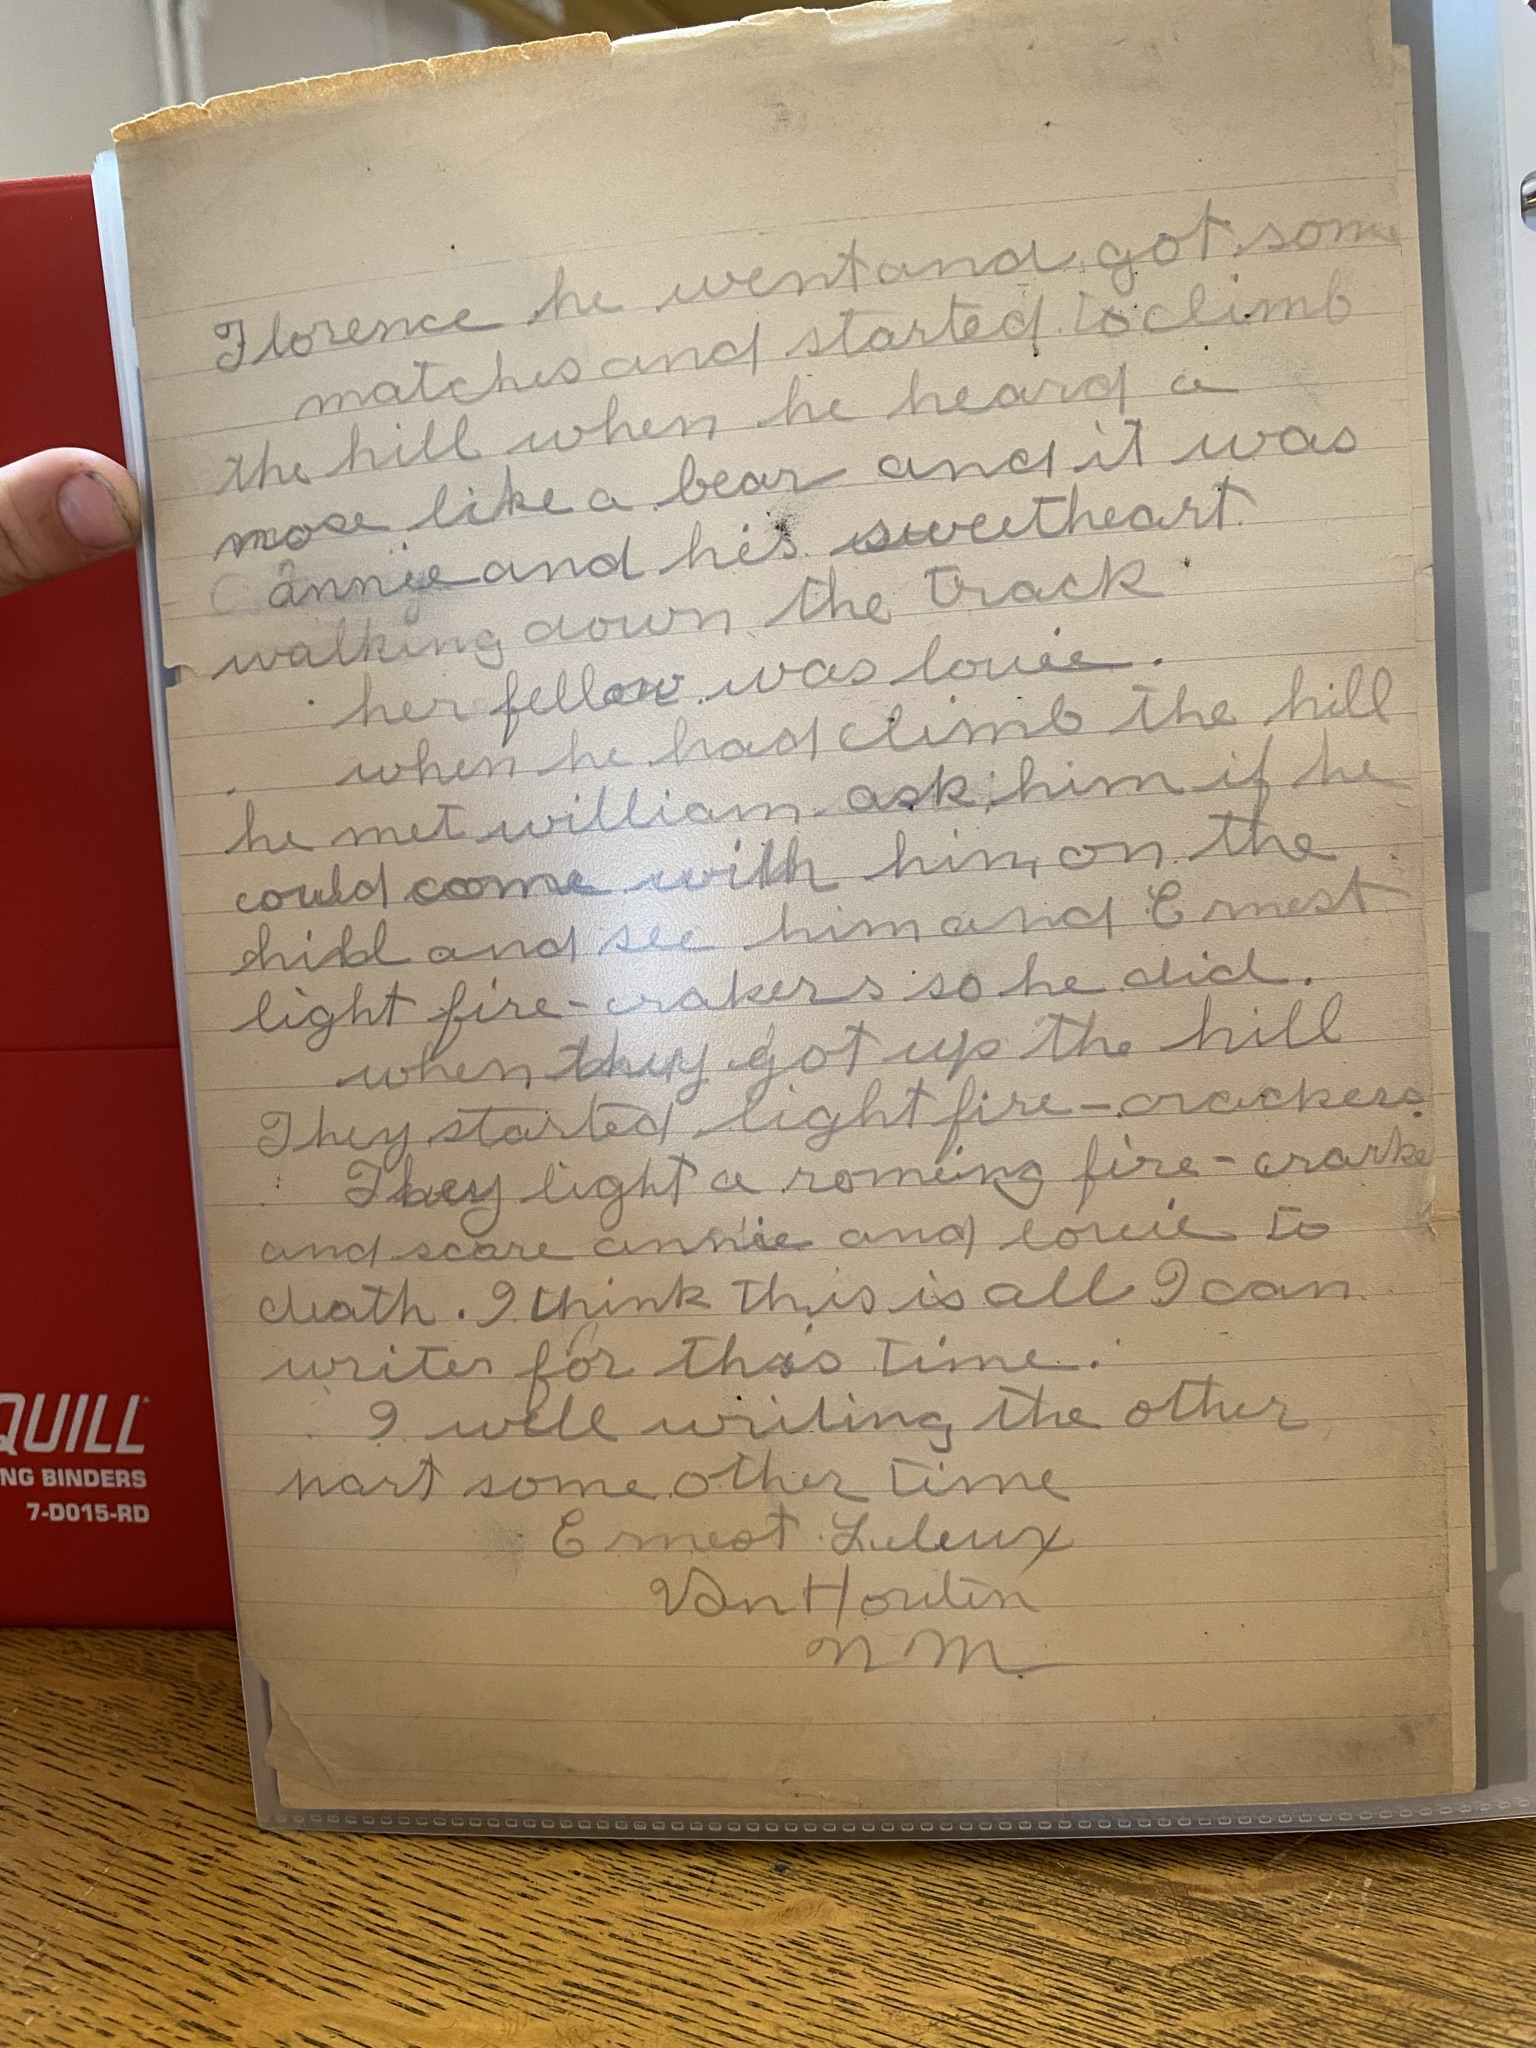 Florence he went and got some
matches and started to climb
the hill when he heard a
nose like a bear and it was
annie and his sweetheart.
walking down the track
her fellow was louie.
when he had climb the hill
he met william ask him if he
could come with him on the
hill and see him and Ernest
light fire-crakers so he did.
when they got up the hill
They started light fire-crackers.
They light a romeing fire-crarke
and scare annie and louie to
death. I think this is all I can
writer for this time.
I well writing the other
part some other time
Ernest Leleux
Van Houten
N M
QUILL
NG BINDERS
7-D015-RD